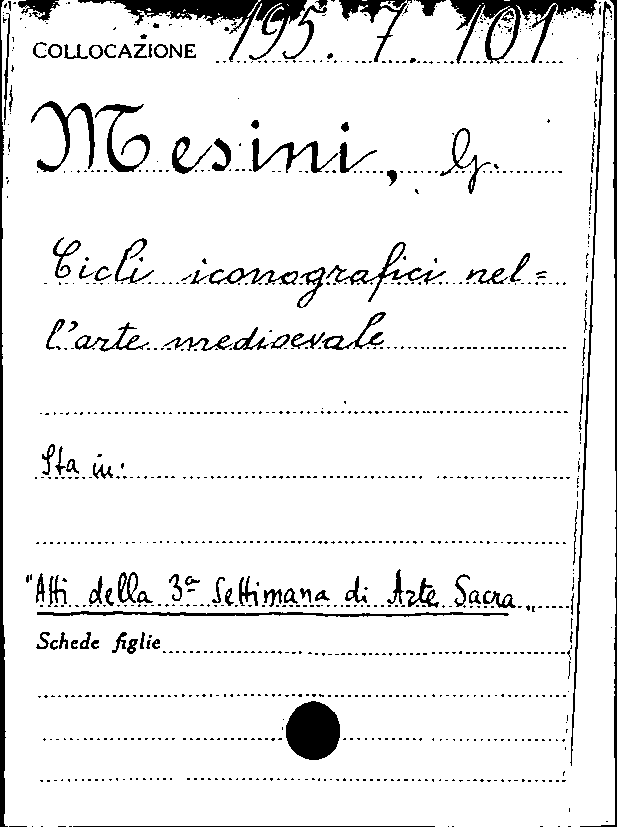 COLLOCAZIONE 195.7.101
Mesini, G.
Cicli iconografici nel=
l'arte medioevale
Sta in:
"Atti della 3ª Settimana di Arte Sacra„
Schede figlie